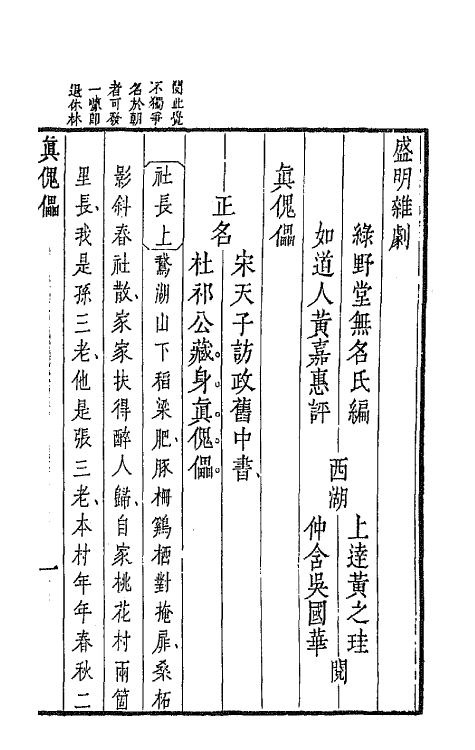 盛明雜劇
綠野堂無名氏編
如道人黃嘉惠評
西湖
上達黃之珪
仲含吳國華
閱
眞傀儡
正名
宋天子訪政舊中書、
杜祁公藏身眞傀儡。
社長上 鵞湖山下稻粱肥、豚柵鷄栖對掩扉、桑柘
影斜春社散、家家扶得醉人歸、自家桃花村兩箇
里長、我是孫三老、他是張三老、本村年年春秋二
閱此覺
不獨爭
名於朝
者可發
一噱卽
退休林
眞傀儡
一